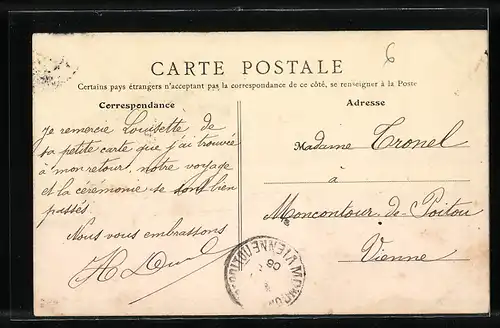 6
CARTE POSTALE
Certains pays étrangers n'acceptant pas la correspondance de ce côté, se renseigner à la Poste
Correspondance
Je remercie Louisette de
sa petite carte que j'ai trouvée
à mon retour, notre voyage
et la cérémonie se sont bien
passés.
Nous vous embrassons
H
Adresse
Madame Tronel
à
Moncontour-de-Poitou
Vienne
VIENNE
08